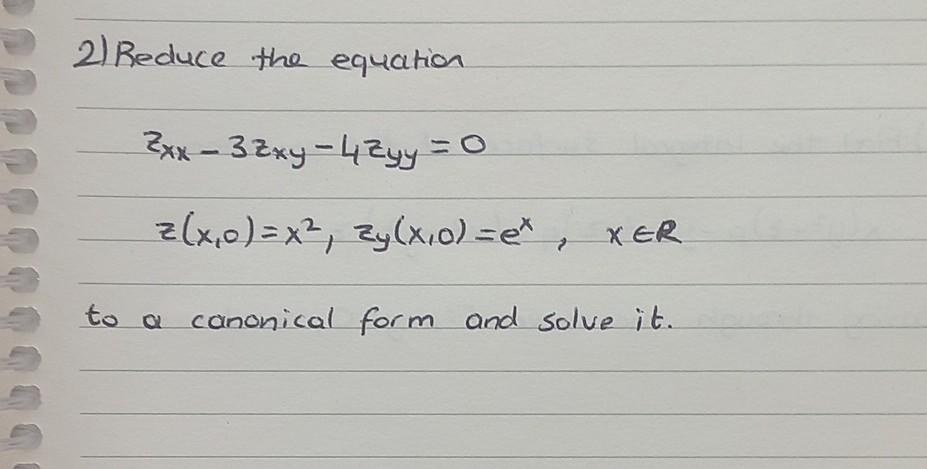 2) Reduce the equation
Zxx - 3Zxy - 4Zyy = 0
z(x,0) = x², zy(x,0) = eˣ, x ∈ R
to a canonical form and solve it.